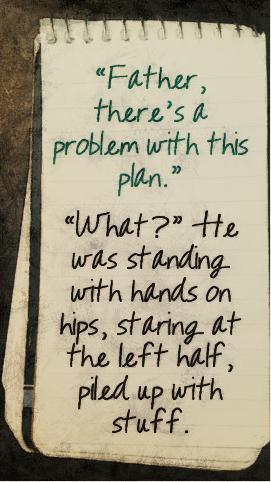 “Father,
there’s a
problem with this
plan.”
“What?” He
was standing
with hands on
hips, staring at
the left half,
piled up with
stuff.